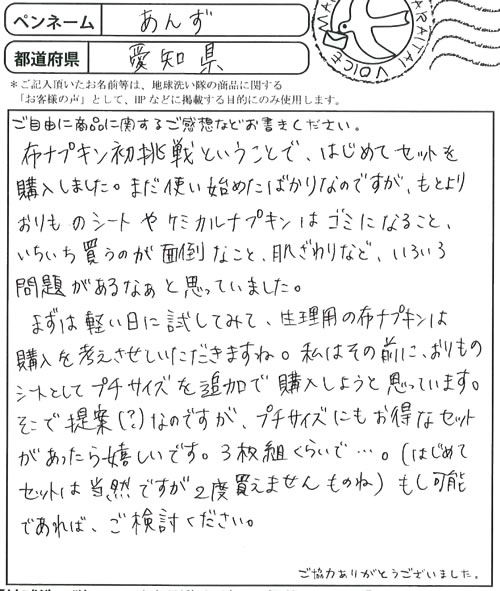 ペンネーム あんず
ARAITAI VOICE MA
都道府県 愛知県
＊ご記入頂いたお名前等は、地球洗い隊の商品に関する
「お客様の声」として、HPなどに掲載する目的にのみ使用します。
ご自由に商品に関するご感想などお書きください。
布ナプキン初挑戦ということで、はじめてセットを
購入しました。まだ使い始めたばかりなのですが、もとより
おりものシートやケミカルナプキンはゴミになること、
いちいち買うのが面倒なこと、肌ざわりなど、いろいろ
問題があるなぁと思っていました。
まずは軽い日に試してみて、生理用の布ナプキンは
購入を考えさせしいただきますね。私はその前に、おりもの
シートとしてプチサイズを追加で購入しようと思っています。
そこで提案(?)なのですが、プチサイズにもお得なセット
があったら嬉しいです。3枚組くらいで…。(はじめて
セットは当然ですが2度買えませんものね)もし可能
であれば、ご検討ください。
ご協力ありがとうございました。